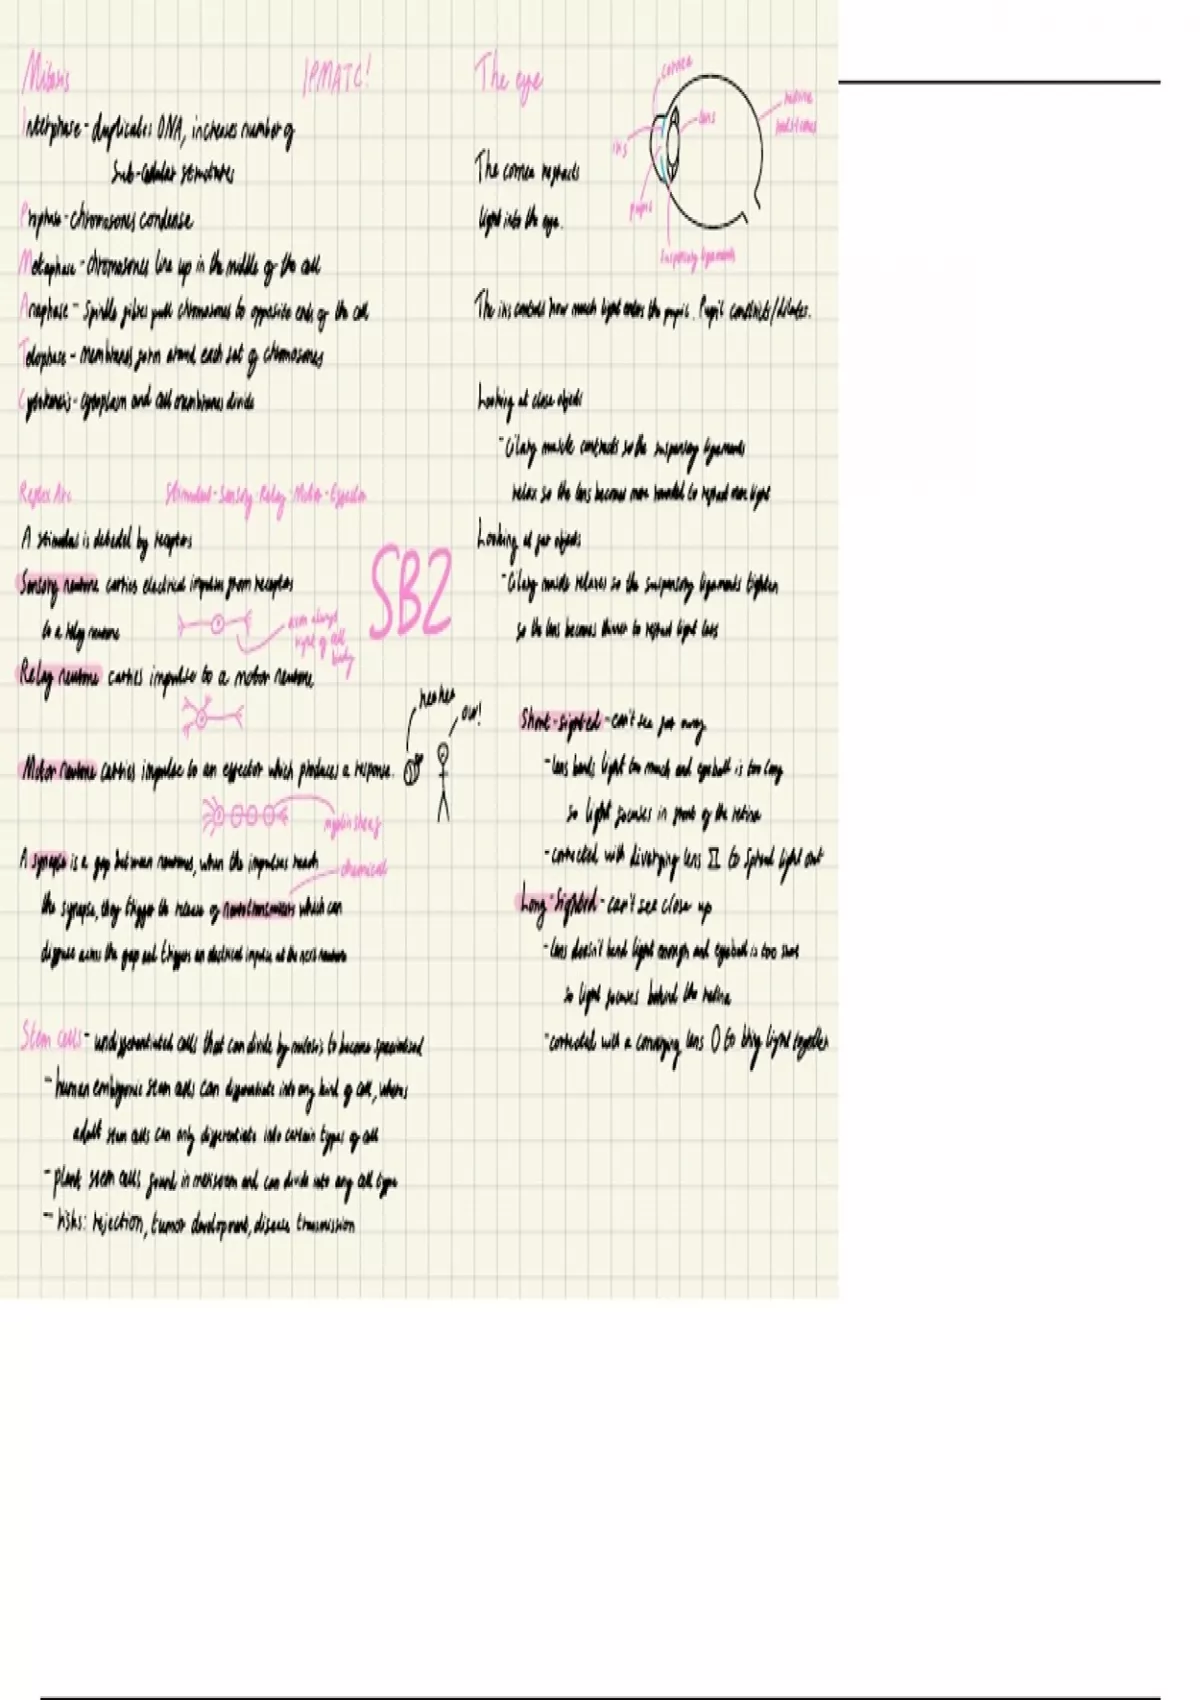 Mitosis
IPMATC!
Interphase - duplicates DNA, increases number of
sub-cellular structures
Prophase - chromosomes condense
Metaphase - chromosomes line up in the middle of the cell
Anaphase - spindle fibres pull chromosomes to opposite ends of the cell
Telophase - membranes form around each set of chromosomes
Cytokinesis - cytoplasm and cell membranes divide
Reflex Arc
Stimulus - Sensory - Relay - Motor - Effector
A stimulus is detected by receptors
Sensory neurone carries electrical impulses from receptors
to a relay neurone
axon always
right of cell
body
Relay neurone carries impulse to a motor neurone
Motor neurone carries impulse to an effector which produces a response.
heh heh
ow!
myelin sheath
A synapse is a gap between neurones, when the impulses reach
chemical
the synapse, they trigger the release of neurotransmitters which can
diffuse across the gap and triggers an electrical impulse at the next neurone
Stem cells - undifferentiated cells that can divide by mitosis to become specialised
- human embryonic stem cells can differentiate into any kind of cell, whereas
adult stem cells can only differentiate into certain types of cell
- plant stem cells found in meristem and can divide into any cell type
- risks: rejection, tumor development, disease transmission
SB2
The eye
cornea
lens
retina
rods + cones
iris
pupil
suspensory ligaments
The cornea refracts
light into the eye.
The iris controls how much light enters the pupil. Pupil constricts/dilates.
Looking at close objects
- Cilary muscle contracts so the suspensory ligaments
relax so the lens becomes more rounded to refract more light
Looking at far objects
- Cilary muscle relaxes so the suspensory ligaments tighten
so the lens becomes thinner to refract light less
Short-sighted - can't see far away
- lens bends light too much and eyeball is too long
so light focuses in front of the retina
- corrected with diverging lens to spread light out
Long-sighted - can't see close up
- lens doesn't bend light enough and eyeball is too short
so light focuses behind the retina
- corrected with a converging lens to bring light together